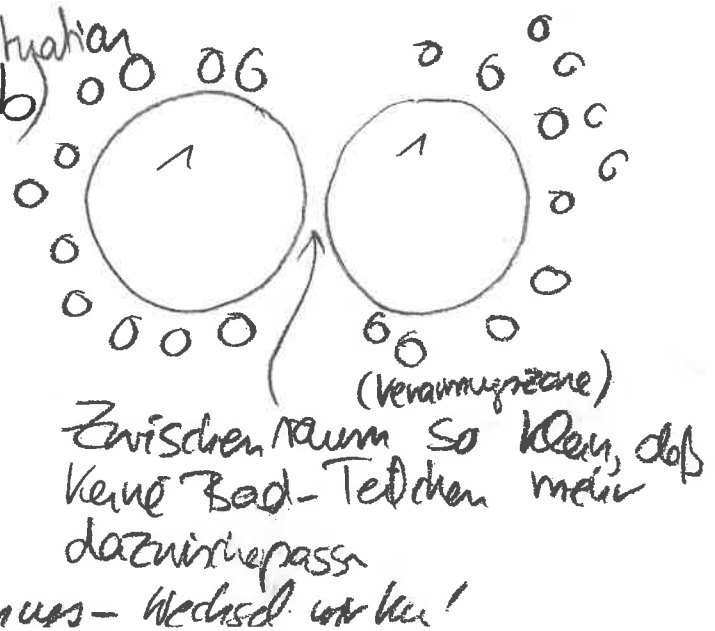 tuation
b)
1
1
(Verarmungszone)
Zwischenraum so klein, daß
keine Bad-Teilchen mehr
dazwischenpassen
Wechselwirku!